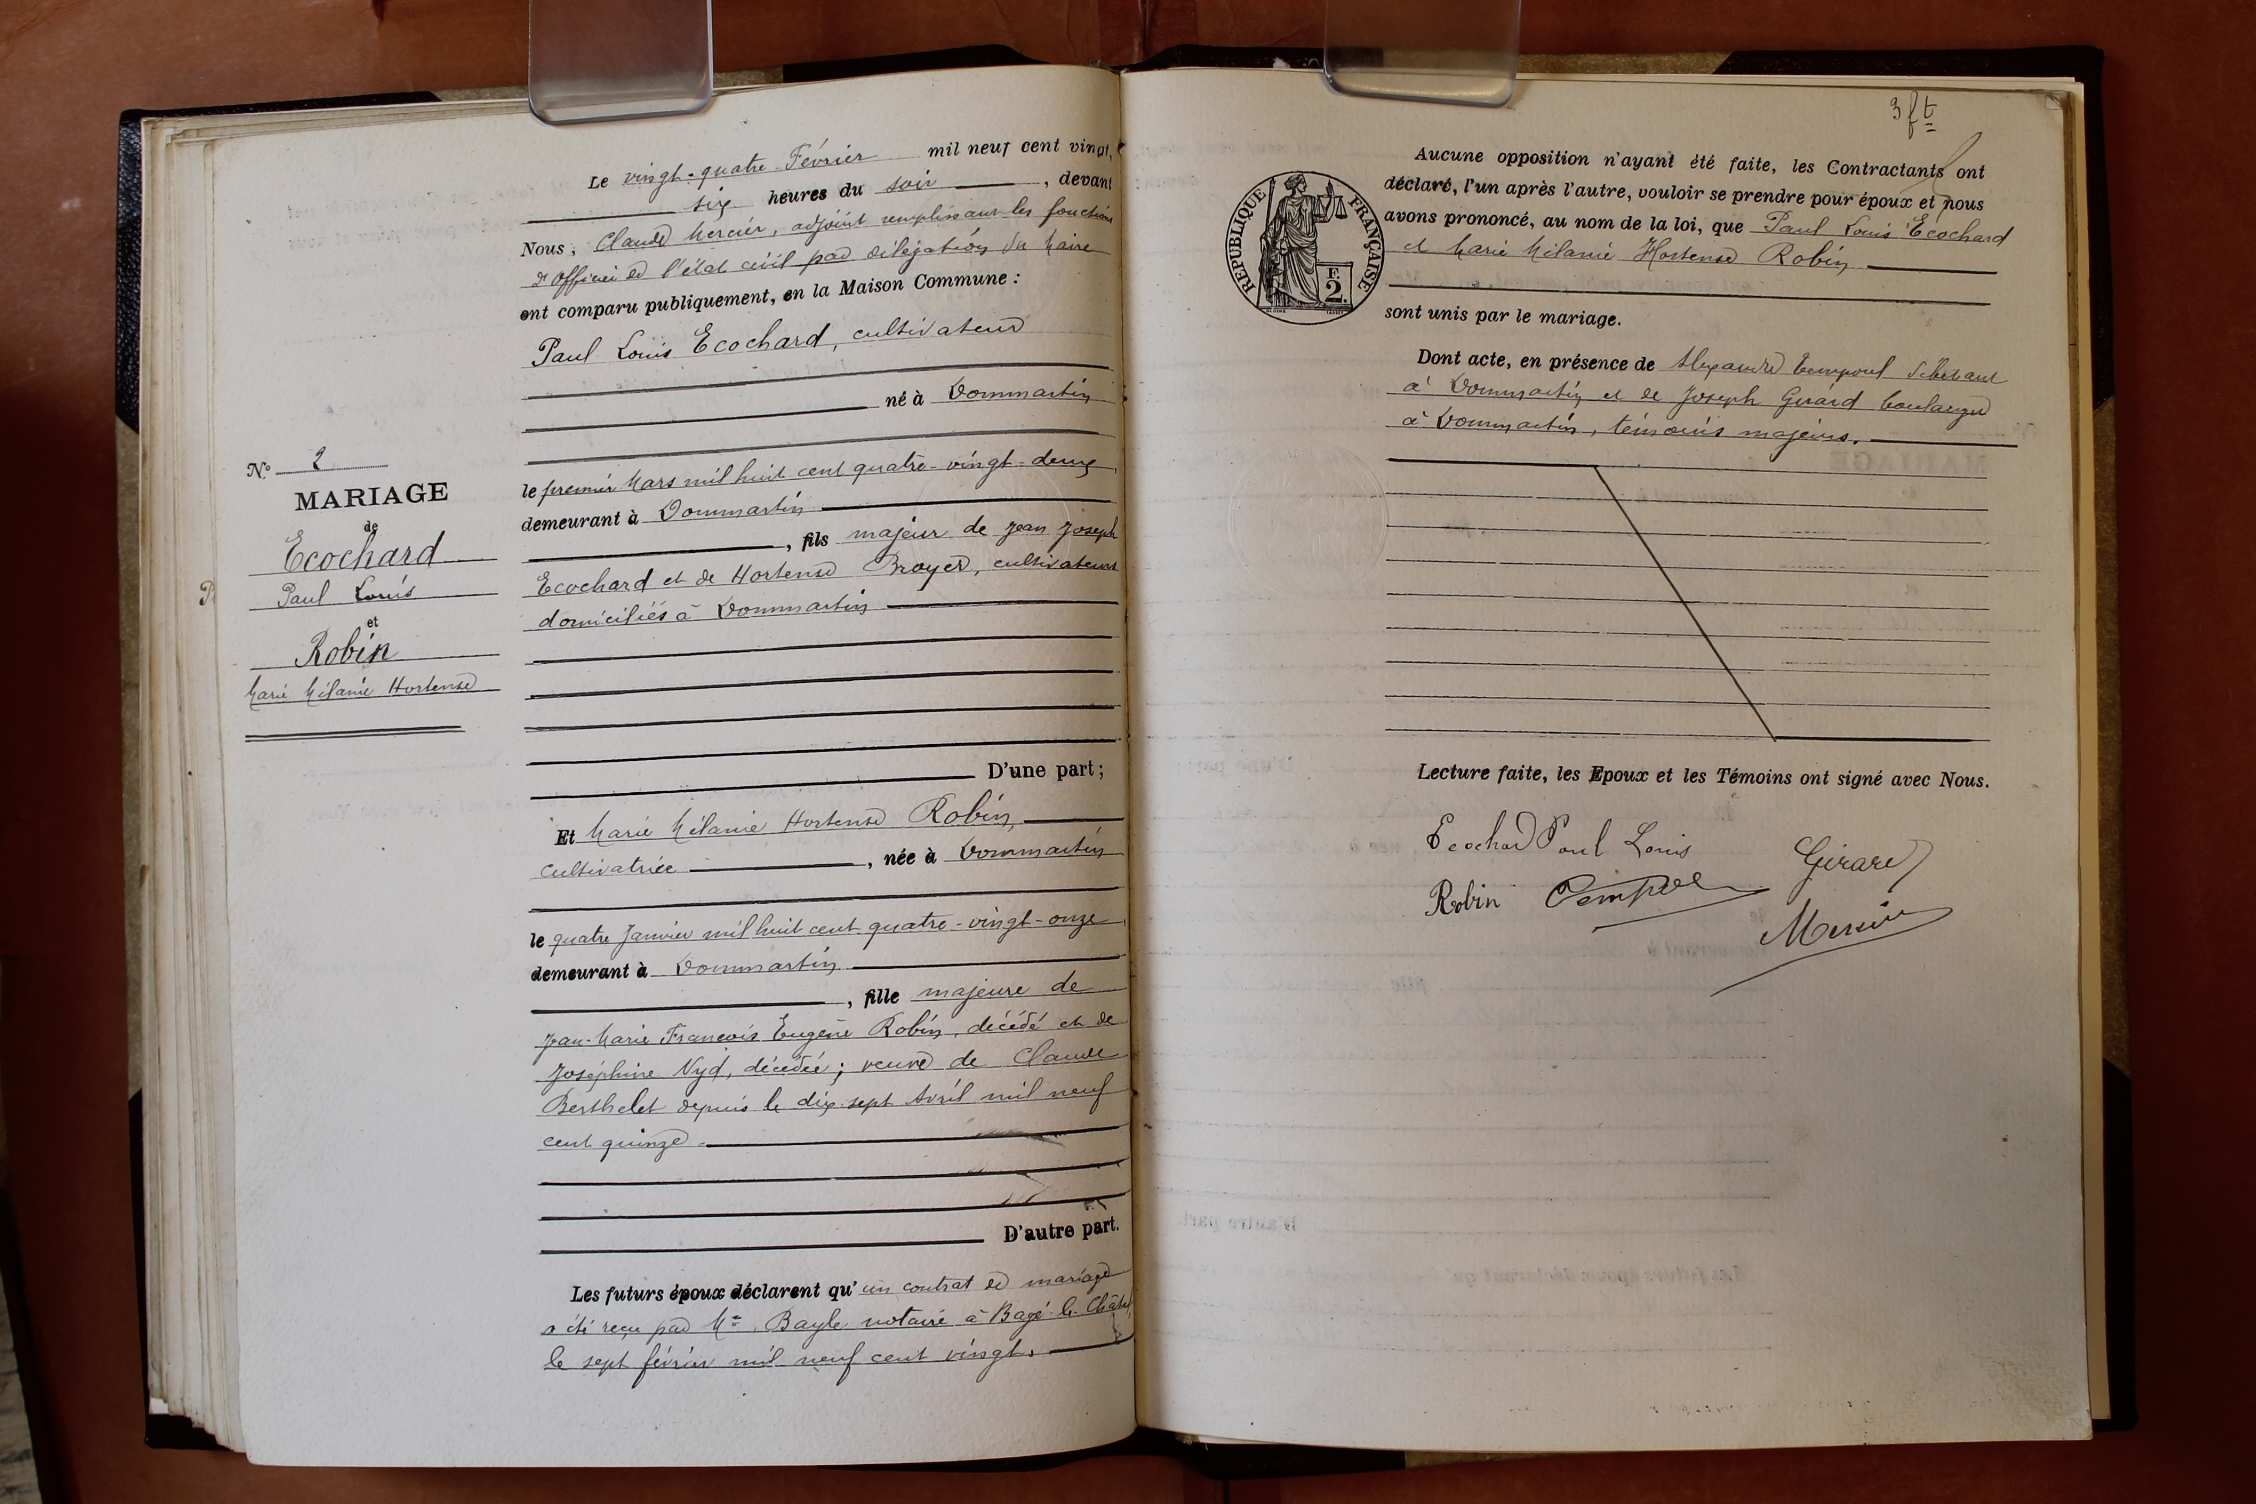 N° 2
MARIAGE
de
Ecochard
Paul Louis
et
Robin
Marie Mélanie Hortense
Le vingt-quatre Février mil neuf cent vingt,
six heures du soir, devant
Nous, Claude Mercier, adjoint remplissant les fonctions
d'officier de l'état civil par délégation du Maire
ont comparu publiquement, en la Maison Commune :
Paul Louis Ecochard, cultivateur
né à Dommartin
le premier Mars mil huit cent quatre-vingt-deux,
demeurant à Dommartin
, fils majeur de Jean Joseph
Ecochard et de Hortense Broyer, cultivateurs
domiciliés à Dommartin
D'une part ;
Et Marie Mélanie Hortense Robin,
cultivatrice, née à Dommartin
le quatre Janvier mil huit cent quatre-vingt-onze
demeurant à Dommartin
, fille majeure de
Jean-Marie François Eugène Robin, décédé et de
Joséphine Nyd, décédée ; veuve de Claude
Berthelet depuis le dix-sept Avril mil neuf
cent quinze.
D'autre part.
Les futurs époux déclarent qu'un contrat de mariage
a été reçu par Me Bayle notaire à Bagé-le-Châtel,
le sept février mil neuf cent vingt.
3 ft
REPUBLIQUE FRANÇAISE
F.
2.
Aucune opposition n'ayant été faite, les Contractants ont
déclaré, l'un après l'autre, vouloir se prendre pour époux et nous
avons prononcé, au nom de la loi, que Paul Louis Ecochard
et Marie Mélanie Hortense Robin
sont unis par le mariage.
Dont acte, en présence de Alexandre Tempoul
à Dommartin et de Joseph Girard boulanger
à Dommartin, témoins majeurs.
Lecture faite, les Epoux et les Témoins ont signé avec Nous.
Ecochard Paul Louis
Girard
Robin
Mercier